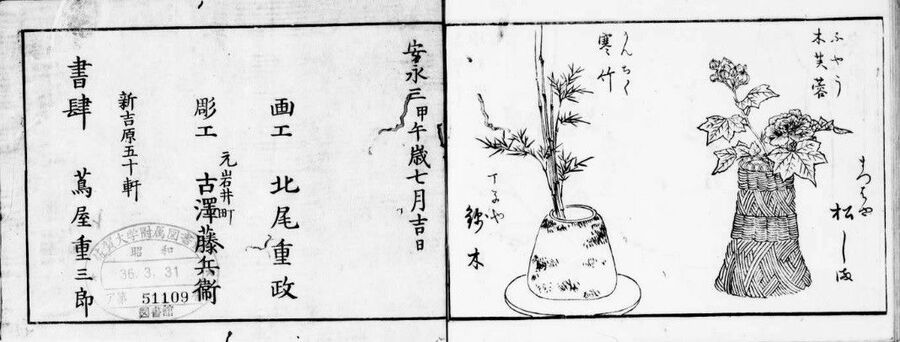 ふやう
木芙蓉
まつばや
松しま
かんちく
寒竹
丁子や
安永三甲午歳七月吉日
画工 北尾重政
元岩井町
彫工 古澤藤兵衛
新吉原五十軒
書肆 蔦屋重三郎
大学附属図書
昭和
36.3.31
第 51109
図書館